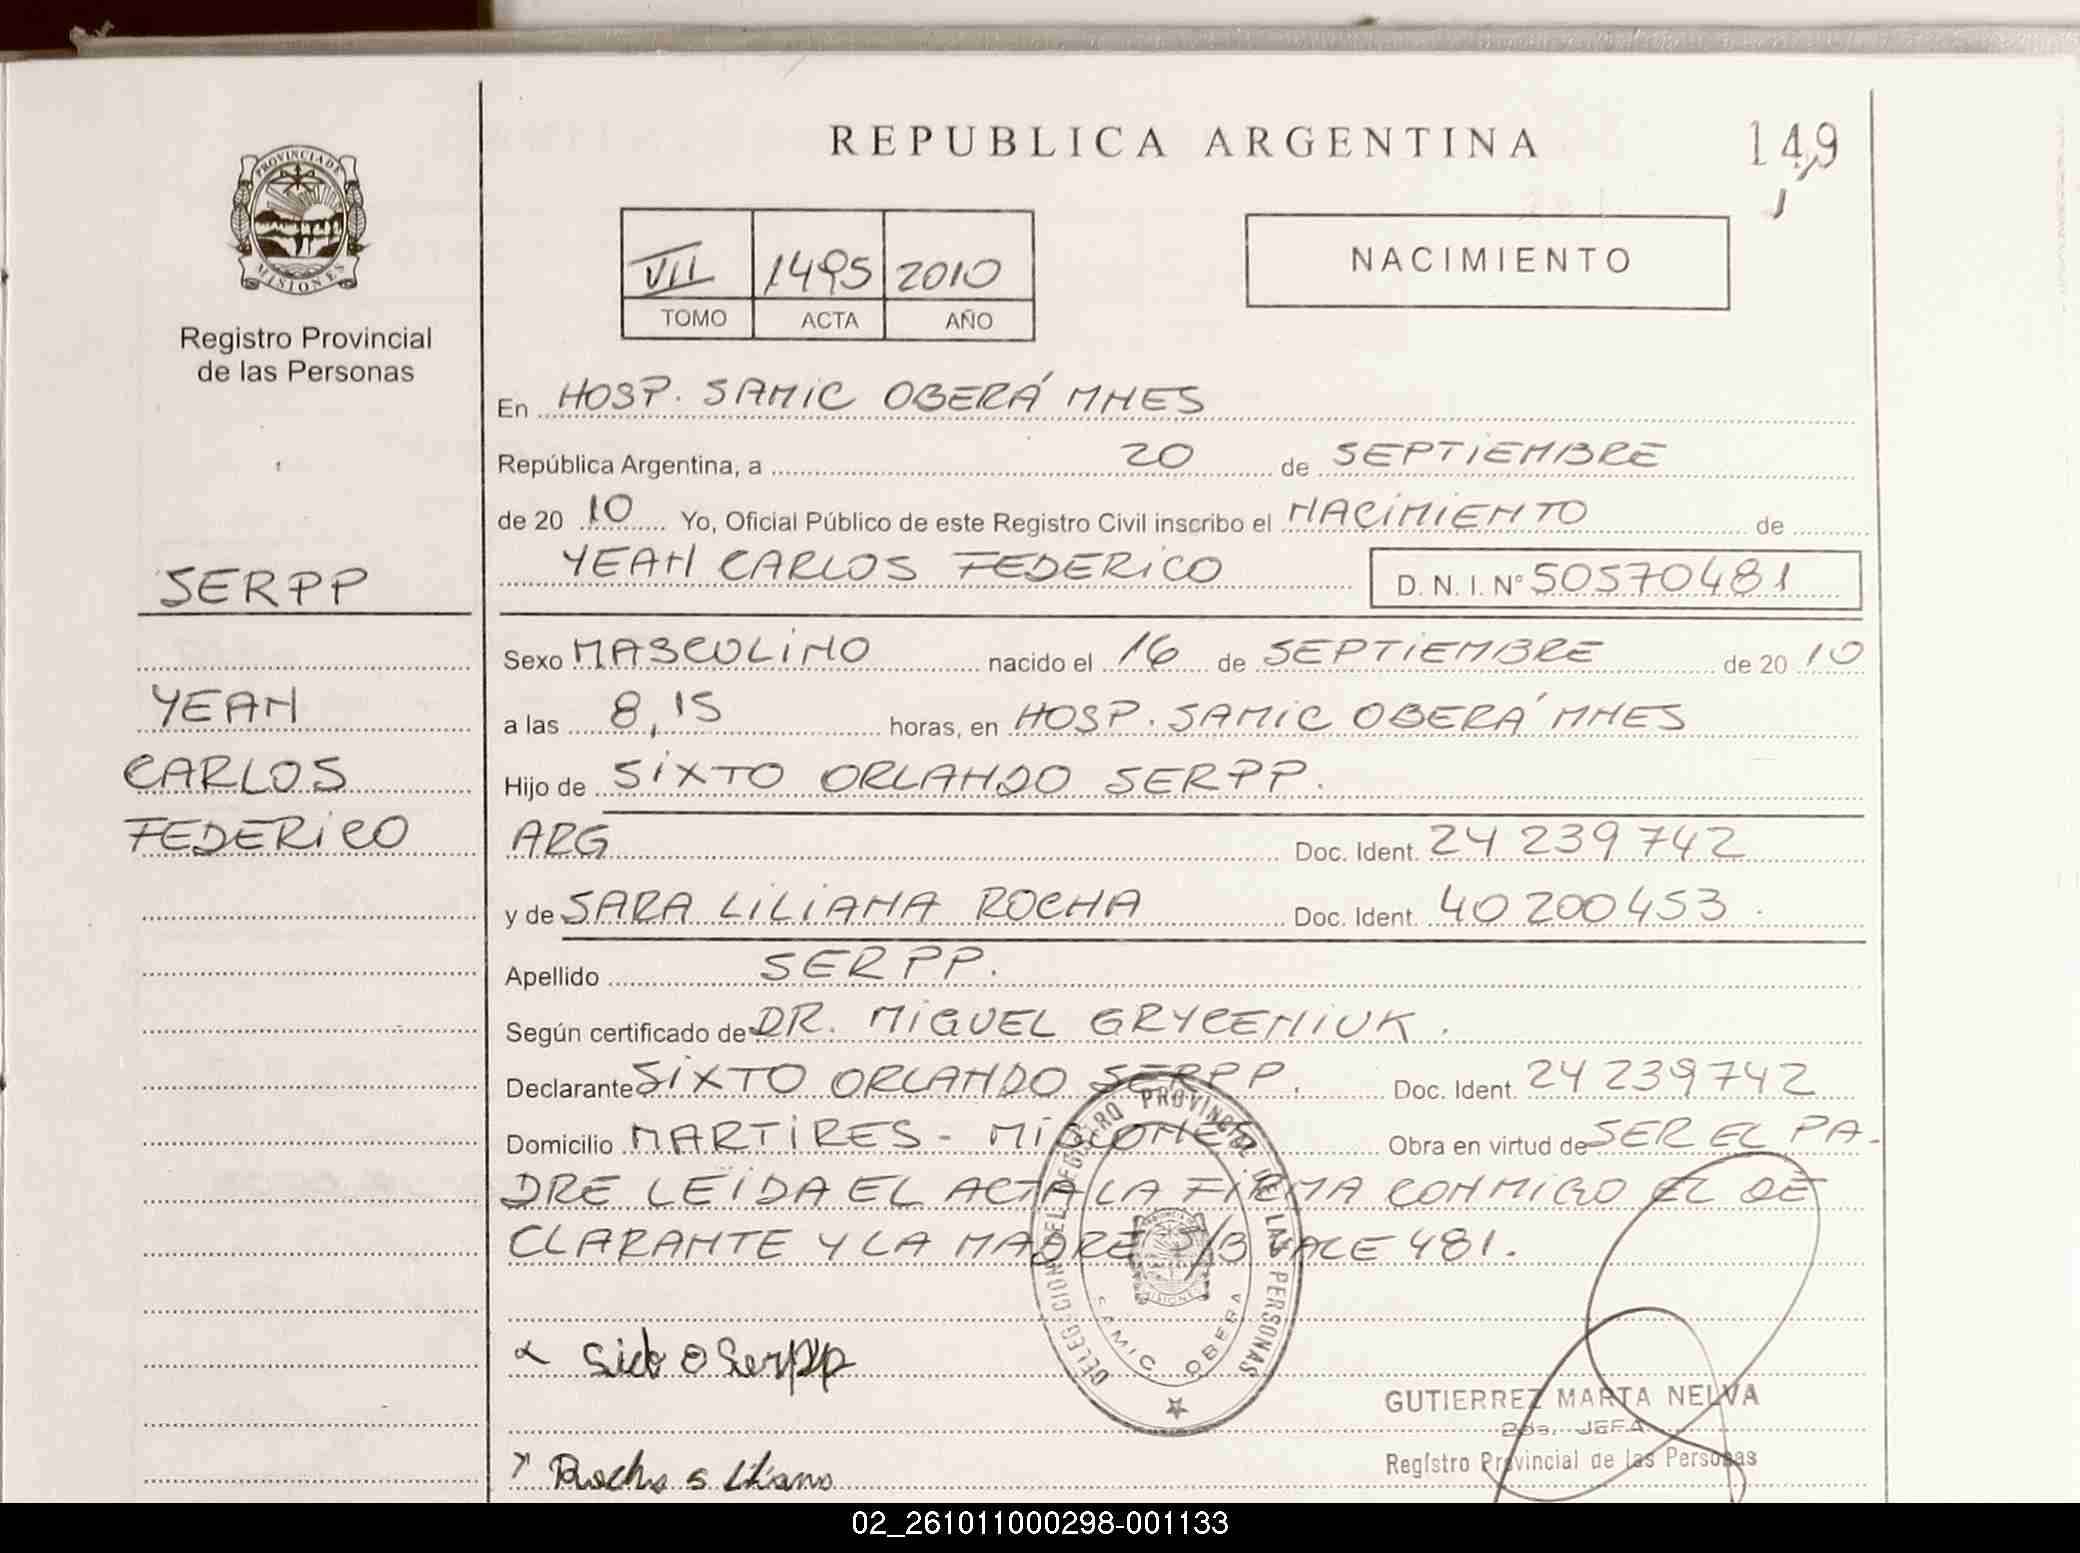 REPUBLICA ARGENTINA
149
PROVINCIA DE
MISIONES
Registro Provincial
de las Personas
VII 1495 2010
TOMO ACTA AÑO
NACIMIENTO
En HOSP. SAMIC OBERÁ MNES
República Argentina, a 20 de SEPTIEMBRE
de 20 10 Yo, Oficial Público de este Registro Civil inscribo el NACIMIENTO de
YEAN CARLOS FEDERICO D. N. I. Nº 50570481
SERPP
YEAN
CARLOS
FEDERICO
Sexo MASCULINO nacido el 16 de SEPTIEMBRE de 20 10
a las 8,15 horas, en HOSP. SAMIC OBERÁ MNES
Hijo de SIXTO ORLANDO SERPP.
ARG Doc. Ident. 24 239 742
y de SARA LILIANA ROCHA Doc. Ident. 40 200 453
Apellido SERPP.
Según certificado de DR. MIGUEL GRYCENIUK.
Declarante SIXTO ORLANDO SERPP. Doc. Ident. 24 239 742
Domicilio MARTIRES - MISIONES Obra en virtud de SER EL PA-
DRE LEIDA EL ACTA LA FIRMA CONMIGO EL DE
CLARANTE Y LA MADRE S/B VALE 481.
DELEGACION DEL REGISTRO PROVINCIAL DE LAS PERSONAS
MISIONES
SAMIC OBERA
Serpp
GUTIERREZ MARTA NELVA
2da. JEFA
Registro Provincial de las Personas
02_261011000298-001133